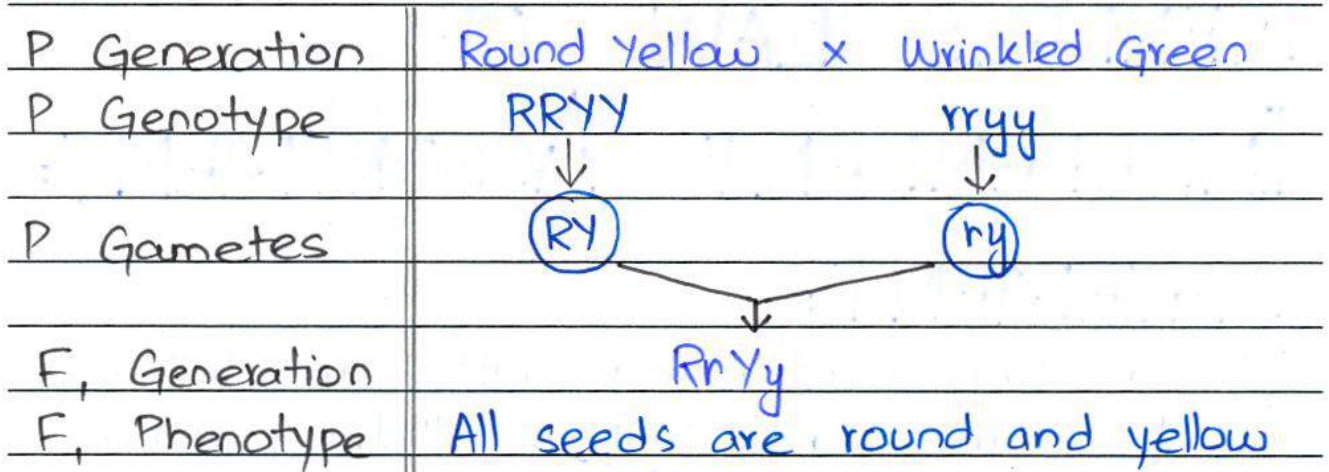 P Generation Round Yellow x Wrinkled Green
P Genotype RRYY rryy
P Gametes RY ry
F, Generation RrYy
F, Phenotype All seeds are round and yellow